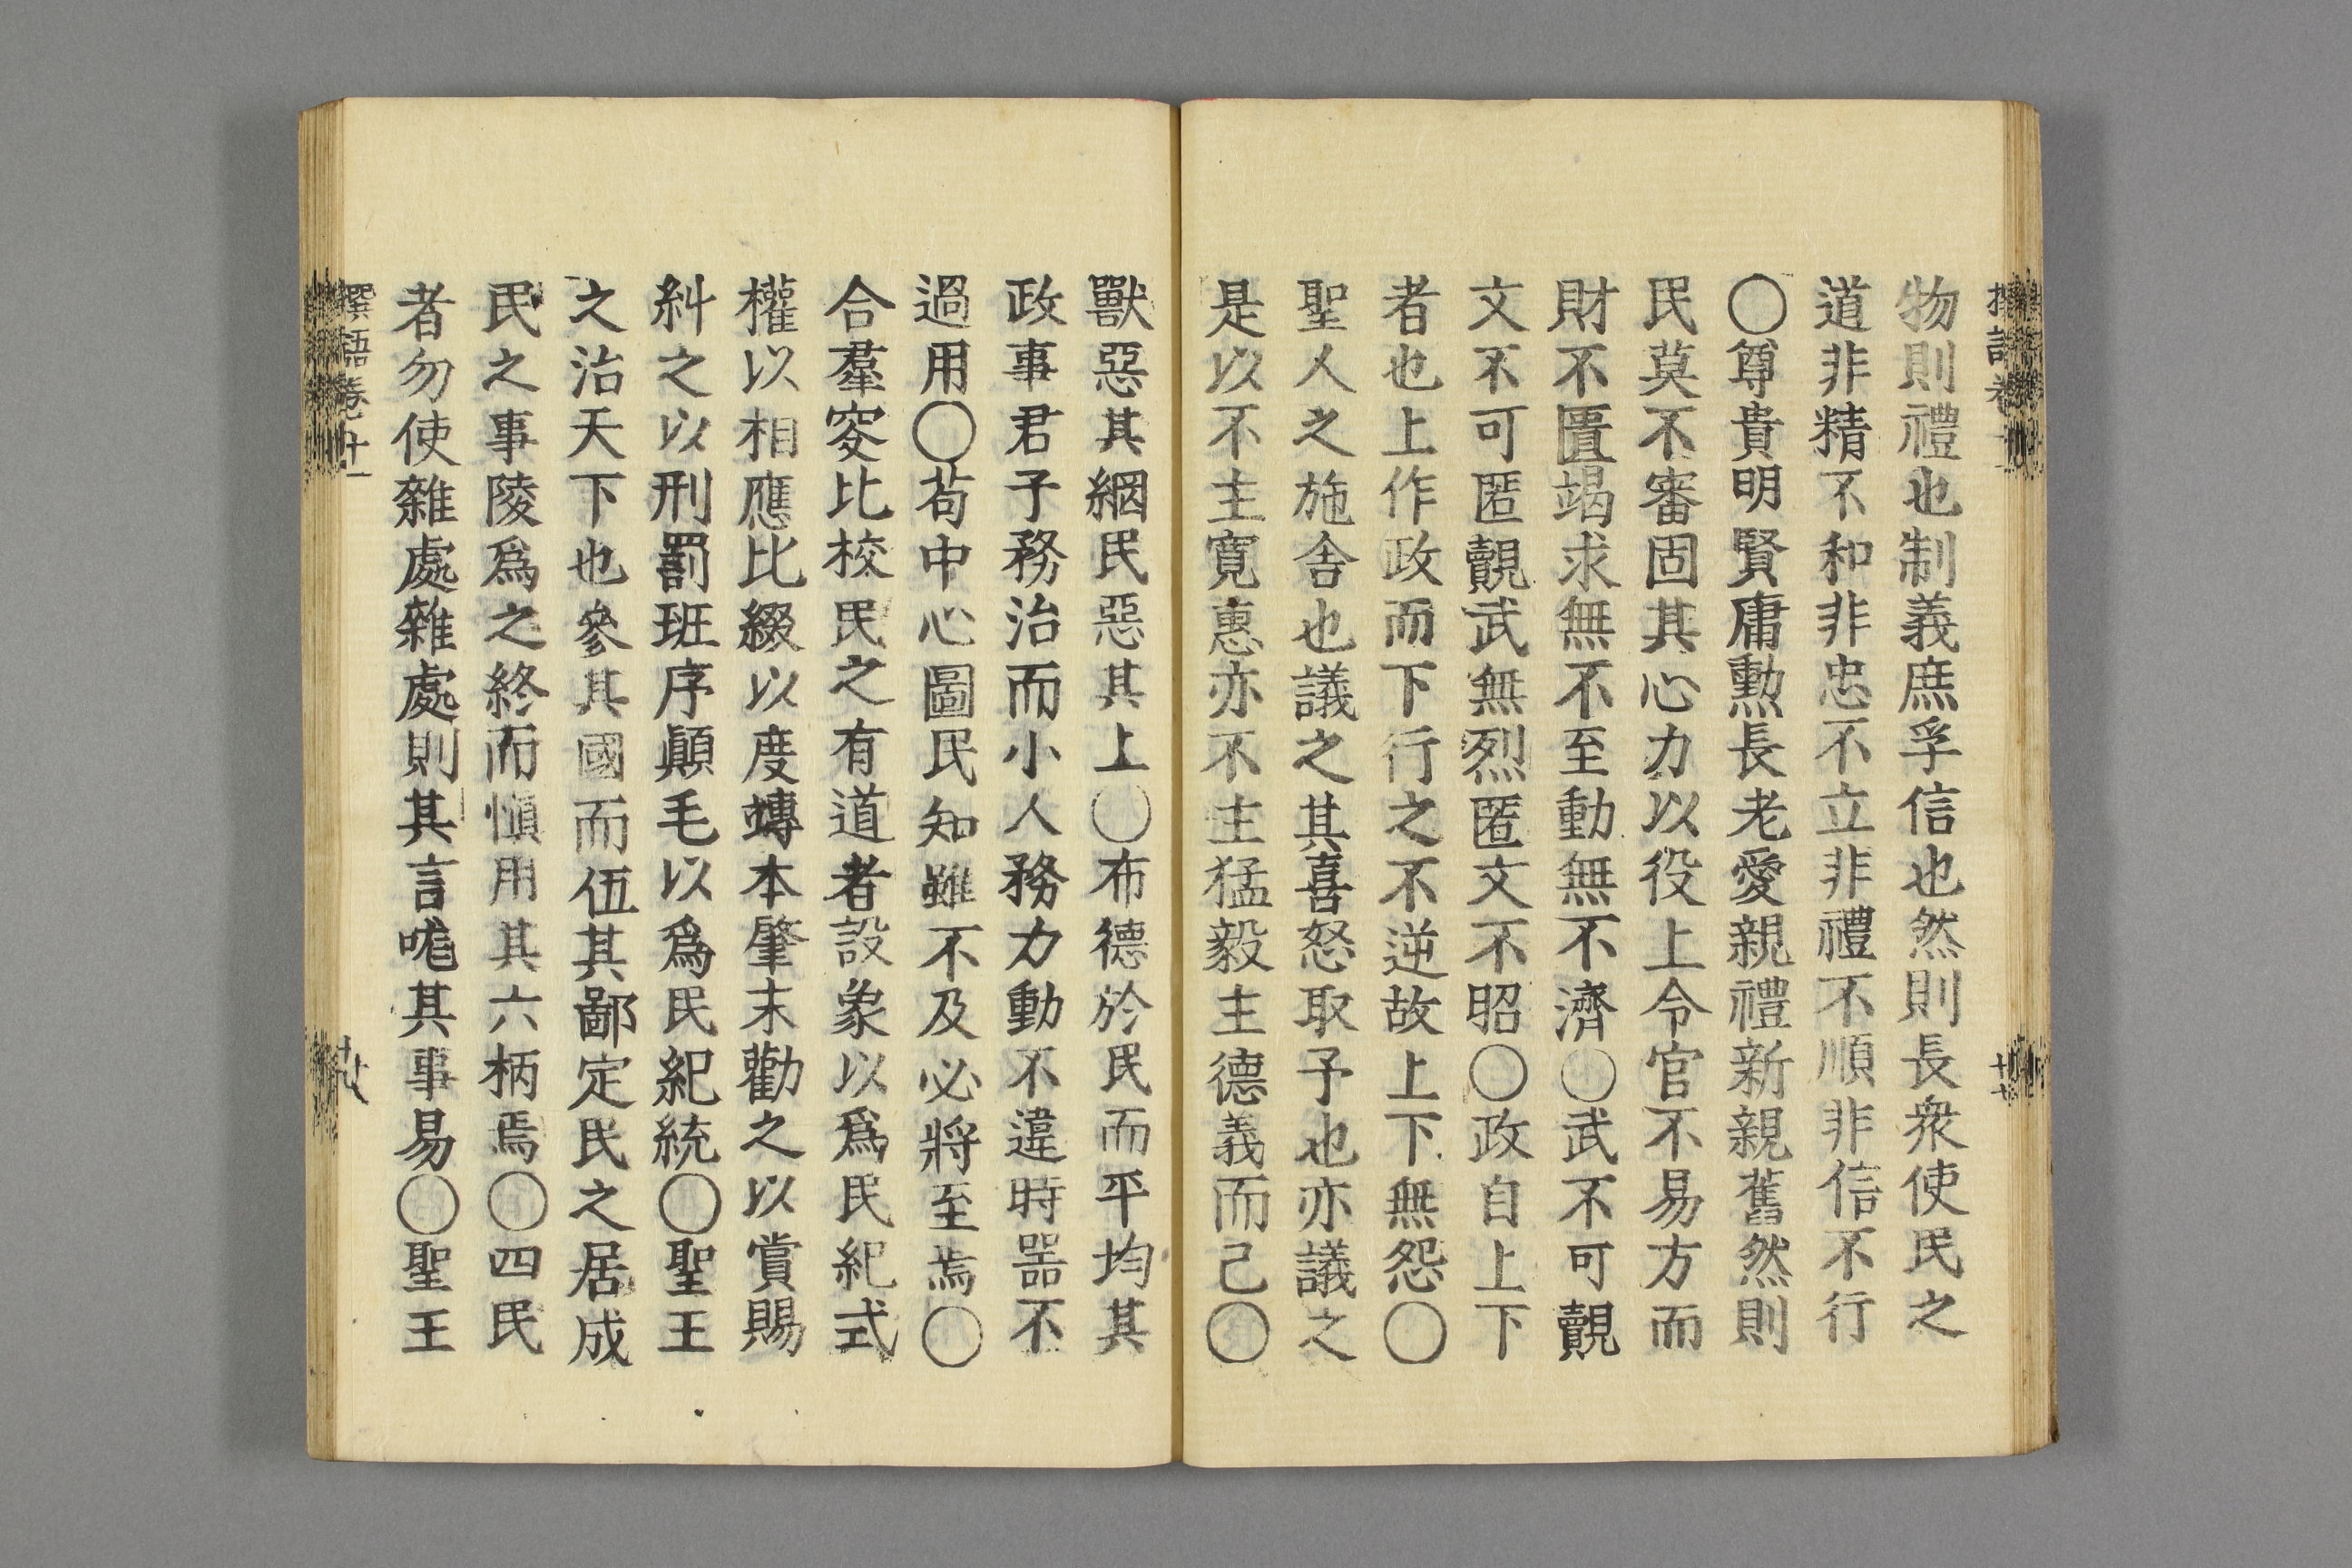 物則禮也制義庶孚信也然則長衆使民之
道非精不和非忠不立非禮不順非信不行
○尊貴明賢庸勲長老愛親禮新親舊然則
民莫不審固其心力以役上令官不易方而
財不匱竭求無不至動無不濟○武不可覿
文不可匿覿武無烈匿文不昭○政自上下
者也上作政而下行之不逆故上下無怨○
聖人之施舍也議之其喜怒取予也亦議之
是以不主寛惠亦不主猛毅主德義而已○
獸惡其網民惡其上○布德於民而平均其
政事君子務治而小人務力動不違時器不
過用○苟中心圖民知雖不及必將至焉○
合羣叜比校民之有道者設象以爲民紀式
權以相應比綴以度竱本肇末勸之以賞賜
糾之以刑罰班序顚毛以爲民紀統○聖王
之治天下也參其國而伍其鄙定民之居成
民之事陵爲之終而愼用其六柄焉○四民
者勿使雜處雜處則其言哤其事易○聖王
撰語卷十一